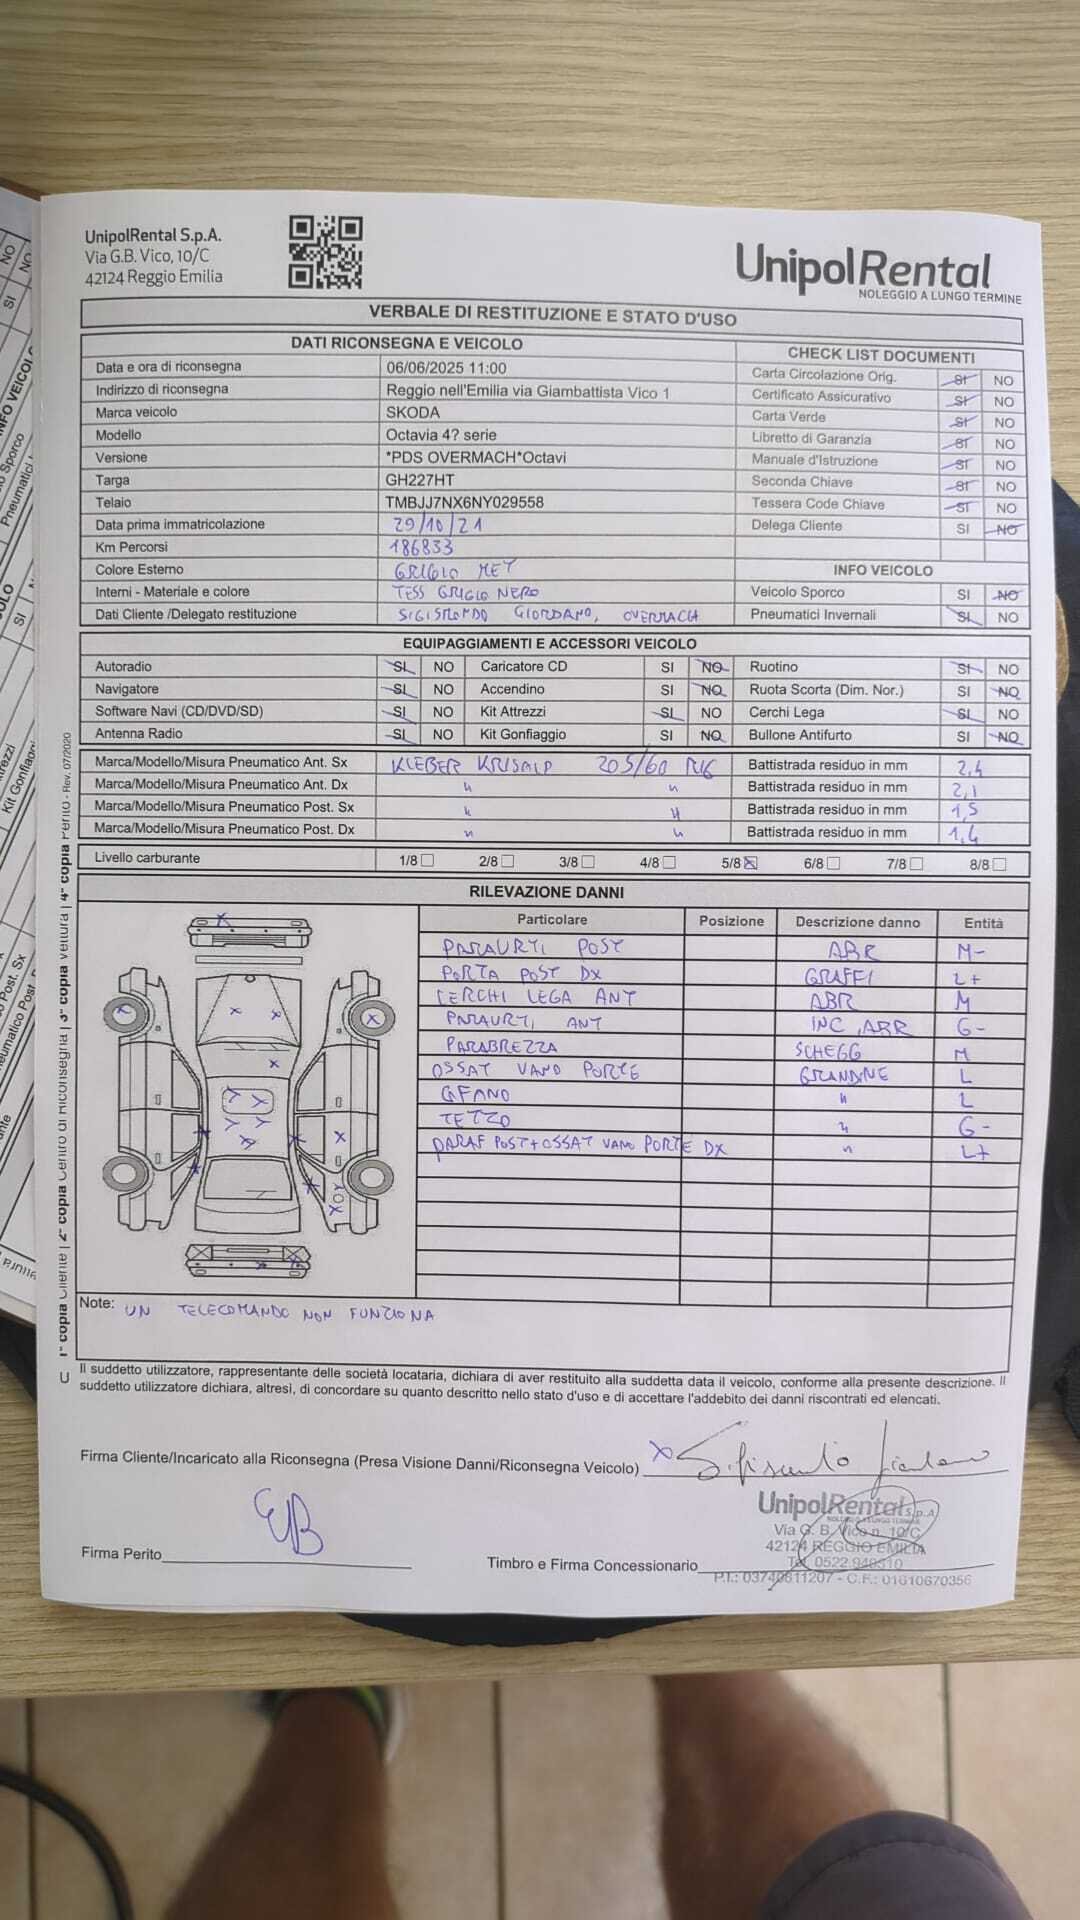 UnipolRental S.p.A.
Via G.B. Vico, 10/C
42124 Reggio Emilia
UnipolRental
NOLEGGIO A LUNGO TERMINE
VERBALE DI RESTITUZIONE E STATO D'USO
DATI RICONSEGNA E VEICOLO
CHECK LIST DOCUMENTI
Data e ora di riconsegna 06/06/2025 11:00 Carta Circolazione Orig. SI NO
Indirizzo di riconsegna Reggio nell'Emilia via Giambattista Vico 1 Certificato Assicurativo SI NO
Marca veicolo SKODA Carta Verde SI NO
Modello Octavia 4? serie Libretto di Garanzia SI NO
Versione *PDS OVERMACH*Octavi Manuale d'Istruzione SI NO
Targa GH227HT Seconda Chiave SI NO
Telaio TMBJJ7NX6NY029558 Tessera Code Chiave SI NO
Data prima immatricolazione 29/10/21 Delega Cliente SI NO
Km Percorsi 186833
Colore Esterno GRIGIO MET INFO VEICOLO
Interni - Materiale e colore TESS GRIGIO NERO Veicolo Sporco SI NO
Dati Cliente /Delegato restituzione SIGISMONDO GIORDANO, OVERMACH Pneumatici Invernali SI NO
EQUIPAGGIAMENTI E ACCESSORI VEICOLO
Autoradio SI NO Caricatore CD SI NO Ruotino SI NO
Navigatore SI NO Accendino SI NO Ruota Scorta (Dim. Nor.) SI NO
Software Navi (CD/DVD/SD) SI NO Kit Attrezzi SI NO Cerchi Lega SI NO
Antenna Radio SI NO Kit Gonfiaggio SI NO Bullone Antifurto SI NO
Marca/Modello/Misura Pneumatico Ant. Sx KLEBER KRISALP 205/60 R16 Battistrada residuo in mm 2,4
Marca/Modello/Misura Pneumatico Ant. Dx " " Battistrada residuo in mm 2,1
Marca/Modello/Misura Pneumatico Post. Sx " " Battistrada residuo in mm 1,5
Marca/Modello/Misura Pneumatico Post. Dx " " Battistrada residuo in mm 1,4
Livello carburante 1/8 2/8 3/8 4/8 5/8 6/8 7/8 8/8
RILEVAZIONE DANNI
Particolare Posizione Descrizione danno Entità
PARAURTI POST ABR M-
PORTA POST DX GRAFFI L+
CERCHI LEGA ANT ABR M
PARAURTI ANT INC, ABR G-
PARABREZZA SCHEGG M
OSSAT VANO PORTE GRANDINE L
COFANO " L
TETTO " G-
PARAF POST+OSSAT VANO PORTE DX " L+
Note: UN TELECOMANDO NON FUNZIONA
Il suddetto utilizzatore, rappresentante delle società locataria, dichiara di aver restituito alla suddetta data il veicolo, conforme alla presente descrizione. Il
suddetto utilizzatore dichiara, altresì, di concordare su quanto descritto nello stato d'uso e di accettare l'addebito dei danni riscontrati ed elencati.
Firma Cliente/Incaricato alla Riconsegna (Presa Visione Danni/Riconsegna Veicolo) x Sigismondo Giordano
Firma Perito EB
Timbro e Firma Concessionario
UnipolRental S.p.A
NOLEGGIO A LUNGO TERMINE
Via G. B. Vico n. 10/C
42124 REGGIO EMILIA
P.I.: 03740811207 - C.F.: 01610670356
Rev. 07/2020